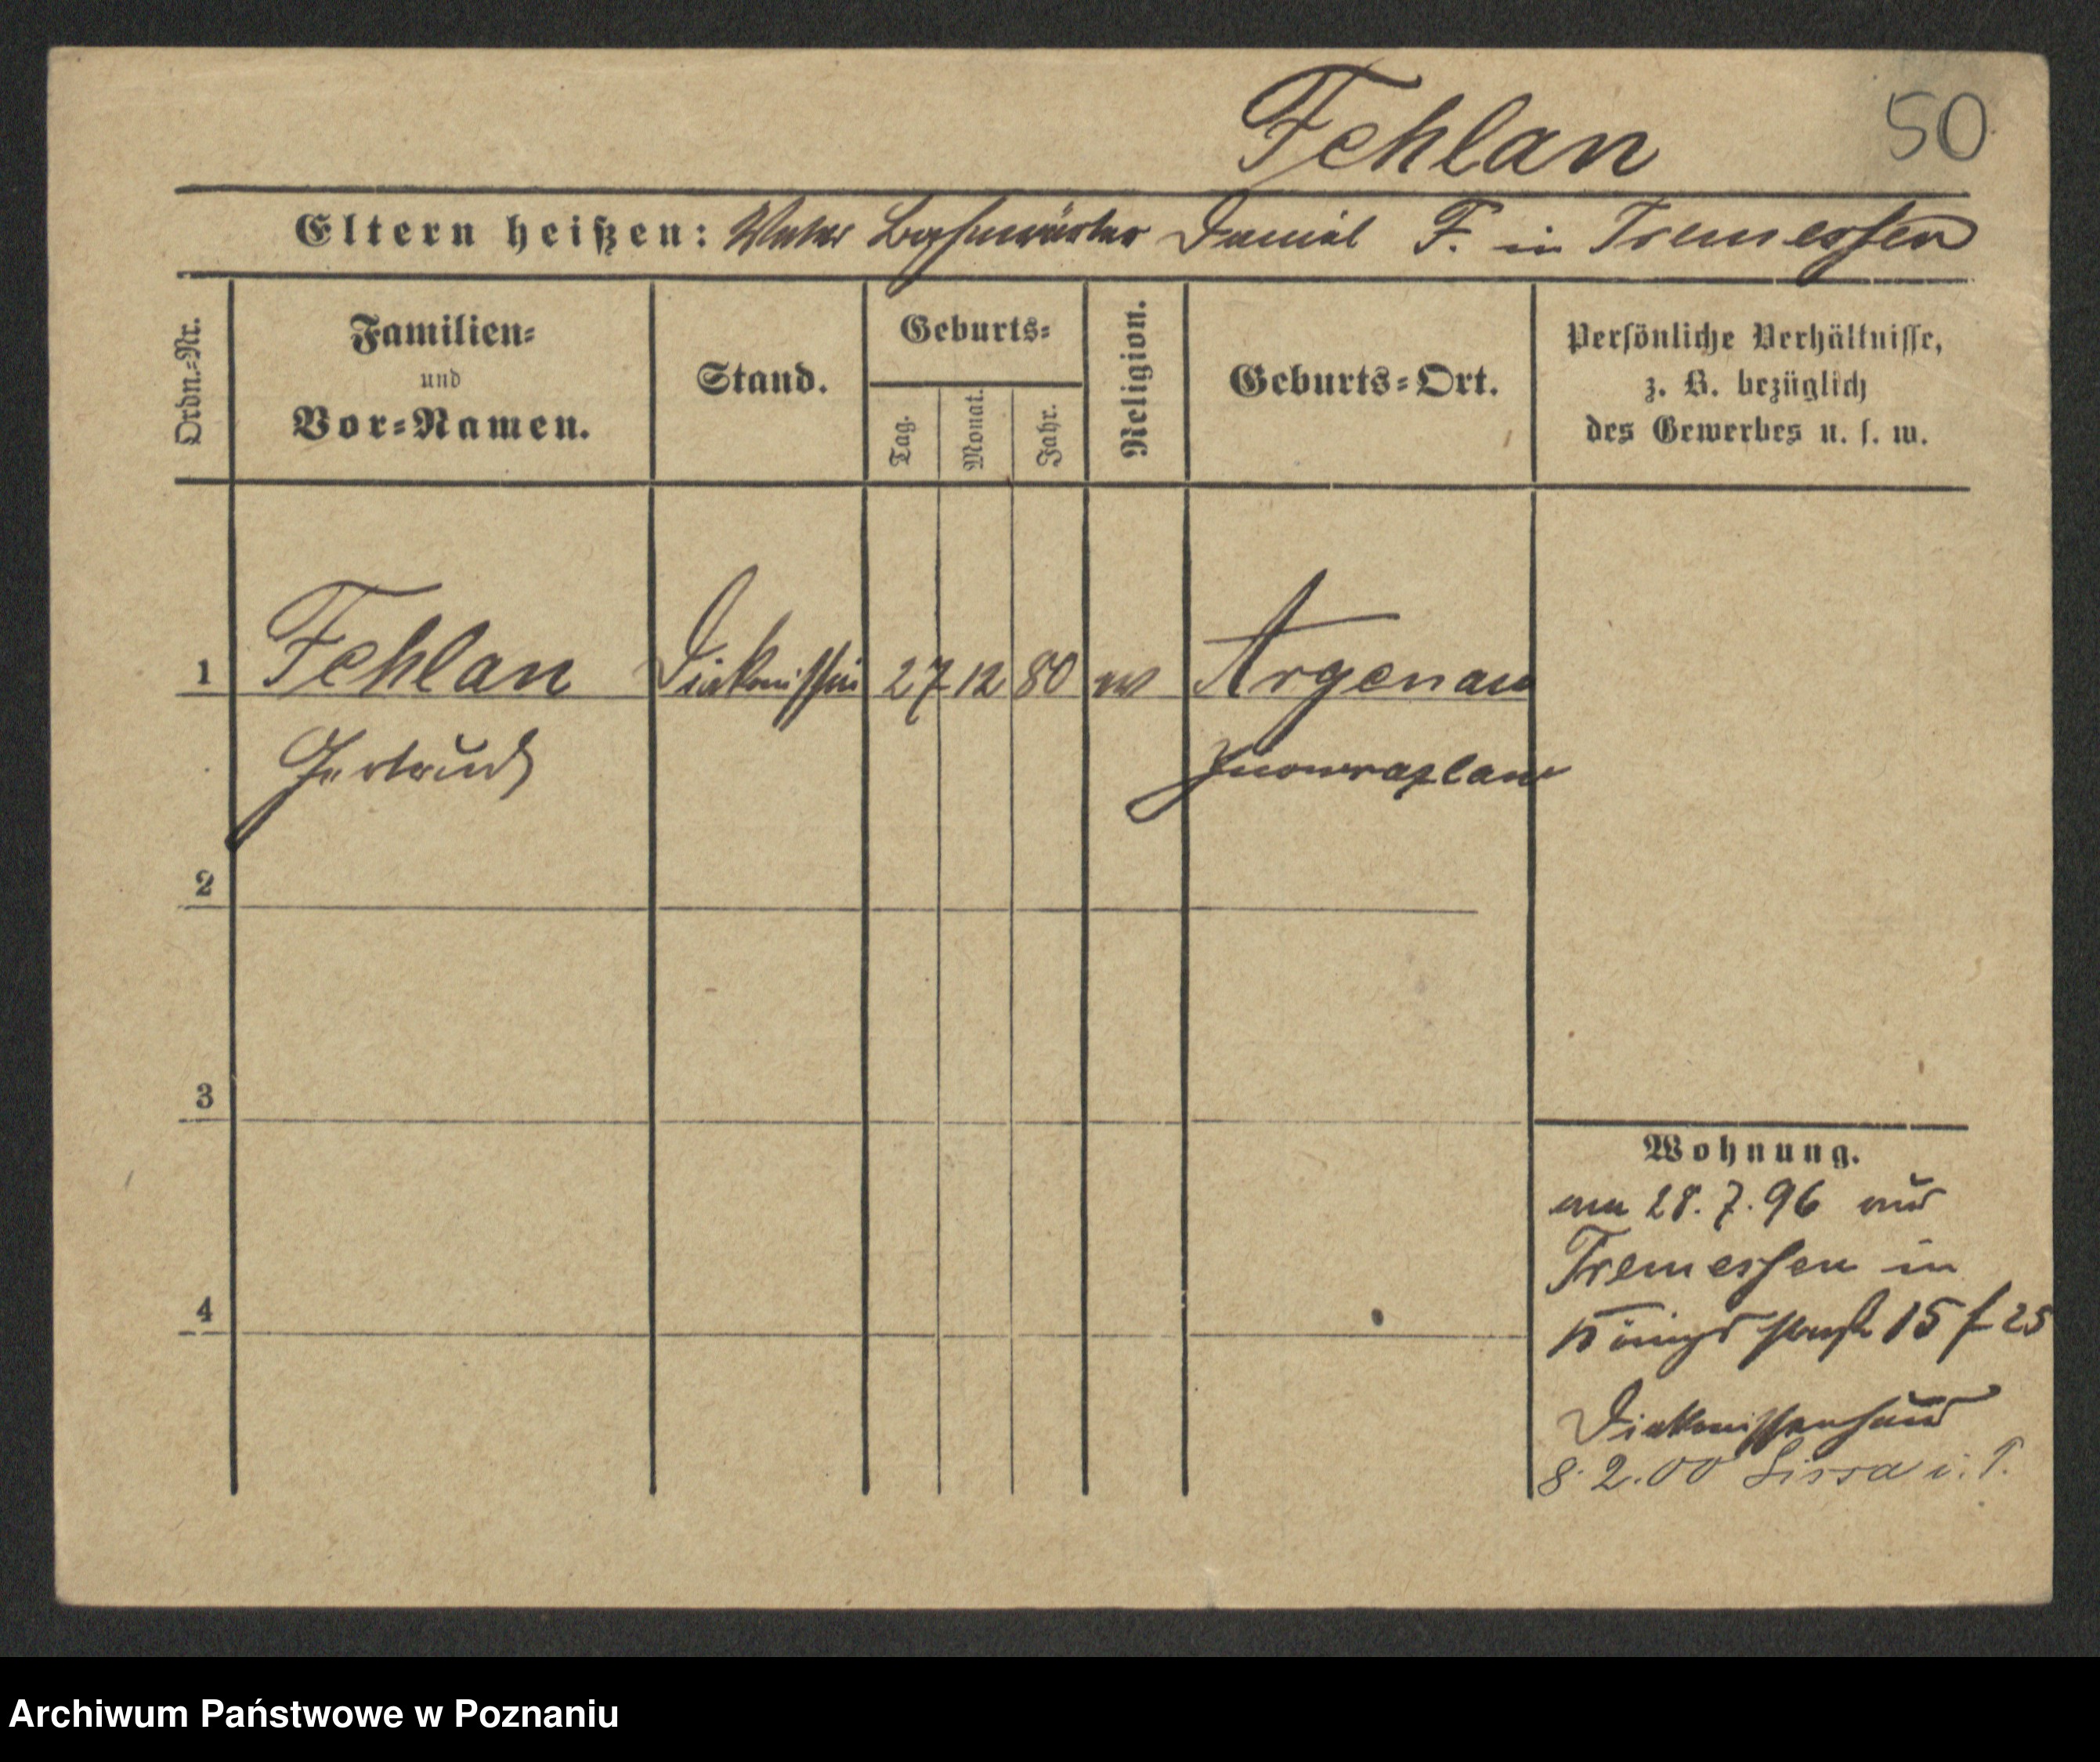 Fehlan 50
Eltern heißen: Vater Bahnwärter Daniel F. in Tremessen
Ordn.-Nr.
Familien-
und
Vor-Namen.
Stand.
Geburts-
Tag.
Monat.
Jahr.
Religion.
Geburts-Ort.
Persönliche Verhältnisse,
z. B. bezüglich
des Gewerbes u. s. w.
1 Fehlan Diakonissin 27 12 80 Argenau
Gertrud Inowrazlaw
2
3
4
Wohnung.
am 28.7.96 aus
Tremessen in
Königstraße 15 f 25
Diakonissenhaus
8.2.00 Lissa i. P.
Archiwum Państwowe w Poznaniu